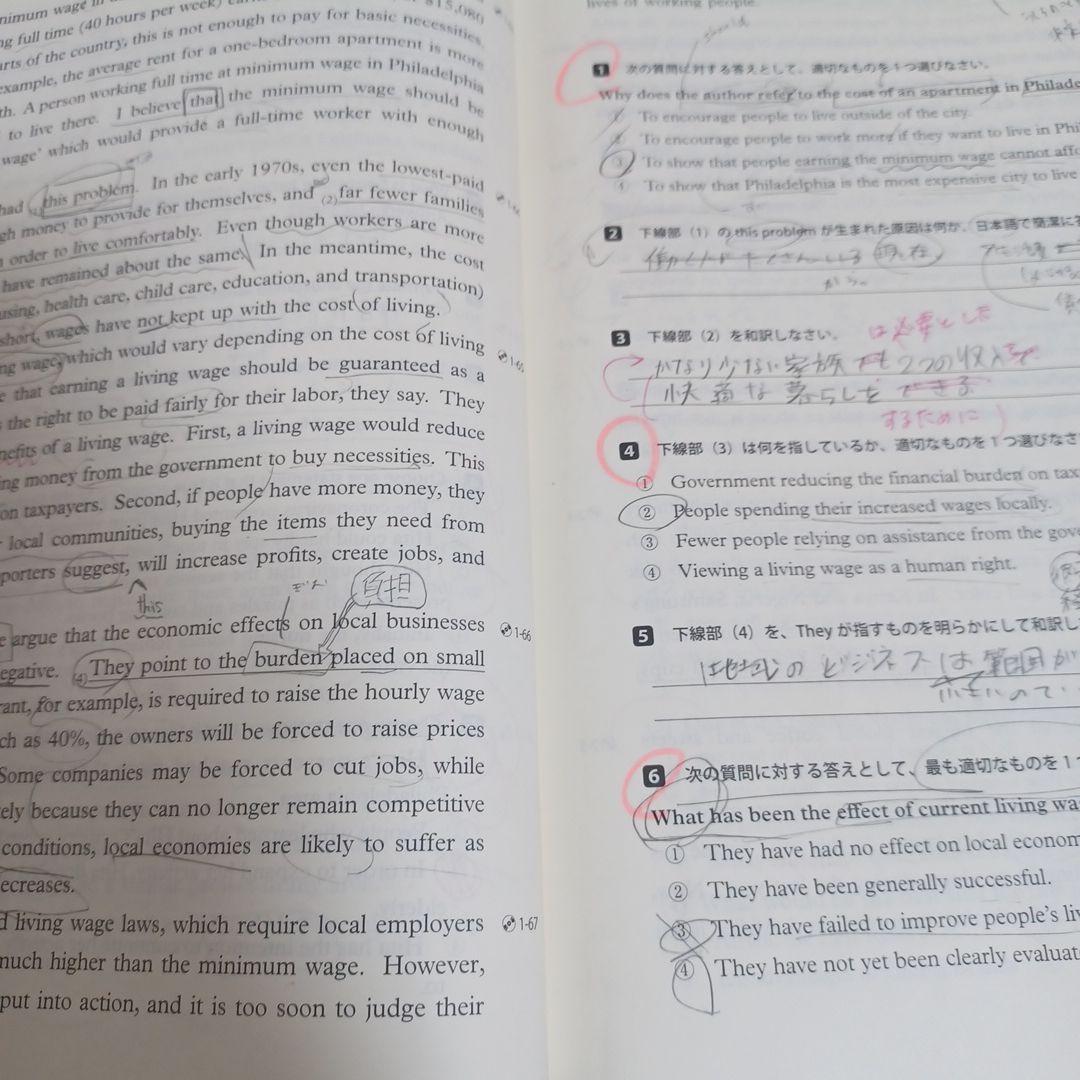 nimum wage in
$15,080
ng full time (40 hours per week)
arts of the country, this is not enough to pay for basic necessities.
example, the average rent for a one-bedroom apartment is more
th. A person working full time at minimum wage in Philadelphia
to live there. I believe that the minimum wage should be
wage' which would provide a full-time worker with enough
had (1)this problem. In the early 1970s, even the lowest-paid
gh money to provide for themselves, and (2)far fewer families
n order to live comfortably. Even though workers are more
have remained about the same. In the meantime, the cost
using, health care, child care, education, and transportation)
short, wages have not kept up with the cost of living.
ng wage, which would vary depending on the cost of living
1-65
e that earning a living wage should be guaranteed as a
s the right to be paid fairly for their labor, they say. They
nefits of a living wage. First, a living wage would reduce
ing money from the government to buy necessities. This
on taxpayers. Second, if people have more money, they
r local communities, buying the items they need from
porters suggest, will increase profits, create jobs, and
this
負担
e argue that the economic effects on local businesses
1-66
egative. (4)They point to the burden placed on small
rant, for example, is required to raise the hourly wage
ch as 40%, the owners will be forced to raise prices
Some companies may be forced to cut jobs, while
ely because they can no longer remain competitive
conditions, local economies are likely to suffer as
ecreases.
d living wage laws, which require local employers
1-67
much higher than the minimum wage. However,
put into action, and it is too soon to judge their
lives of working people.
1 次の質問に対する答えとして、適切なものを1つ選びなさい。
Why does the author refer to the cost of an apartment in Philade
① To encourage people to live outside of the city.
② To encourage people to work more if they want to live in Phi
③ To show that people earning the minimum wage cannot affo
④ To show that Philadelphia is the most expensive city to live
2 下線部(1)の this problem が生まれた原因は何か、日本語で簡潔に答
現在
3 下線部(2)を和訳しなさい。
は必要とした
かなり少ない家族でも2つの収入で
快適な暮らしをできる
するために
4 下線部(3)は何を指しているか、適切なものを1つ選びなさ
① Government reducing the financial burden on tax
② People spending their increased wages locally.
③ Fewer people relying on assistance from the gove
④ Viewing a living wage as a human right.
5 下線部(4)を、Theyが指すものを明らかにして和訳し
地域のビジネスは範囲が
6 次の質問に対する答えとして、最も適切なものを1
What has been the effect of current living wa
① They have had no effect on local econom
② They have been generally successful.
③ They have failed to improve people's liv
④ They have not yet been clearly evaluat